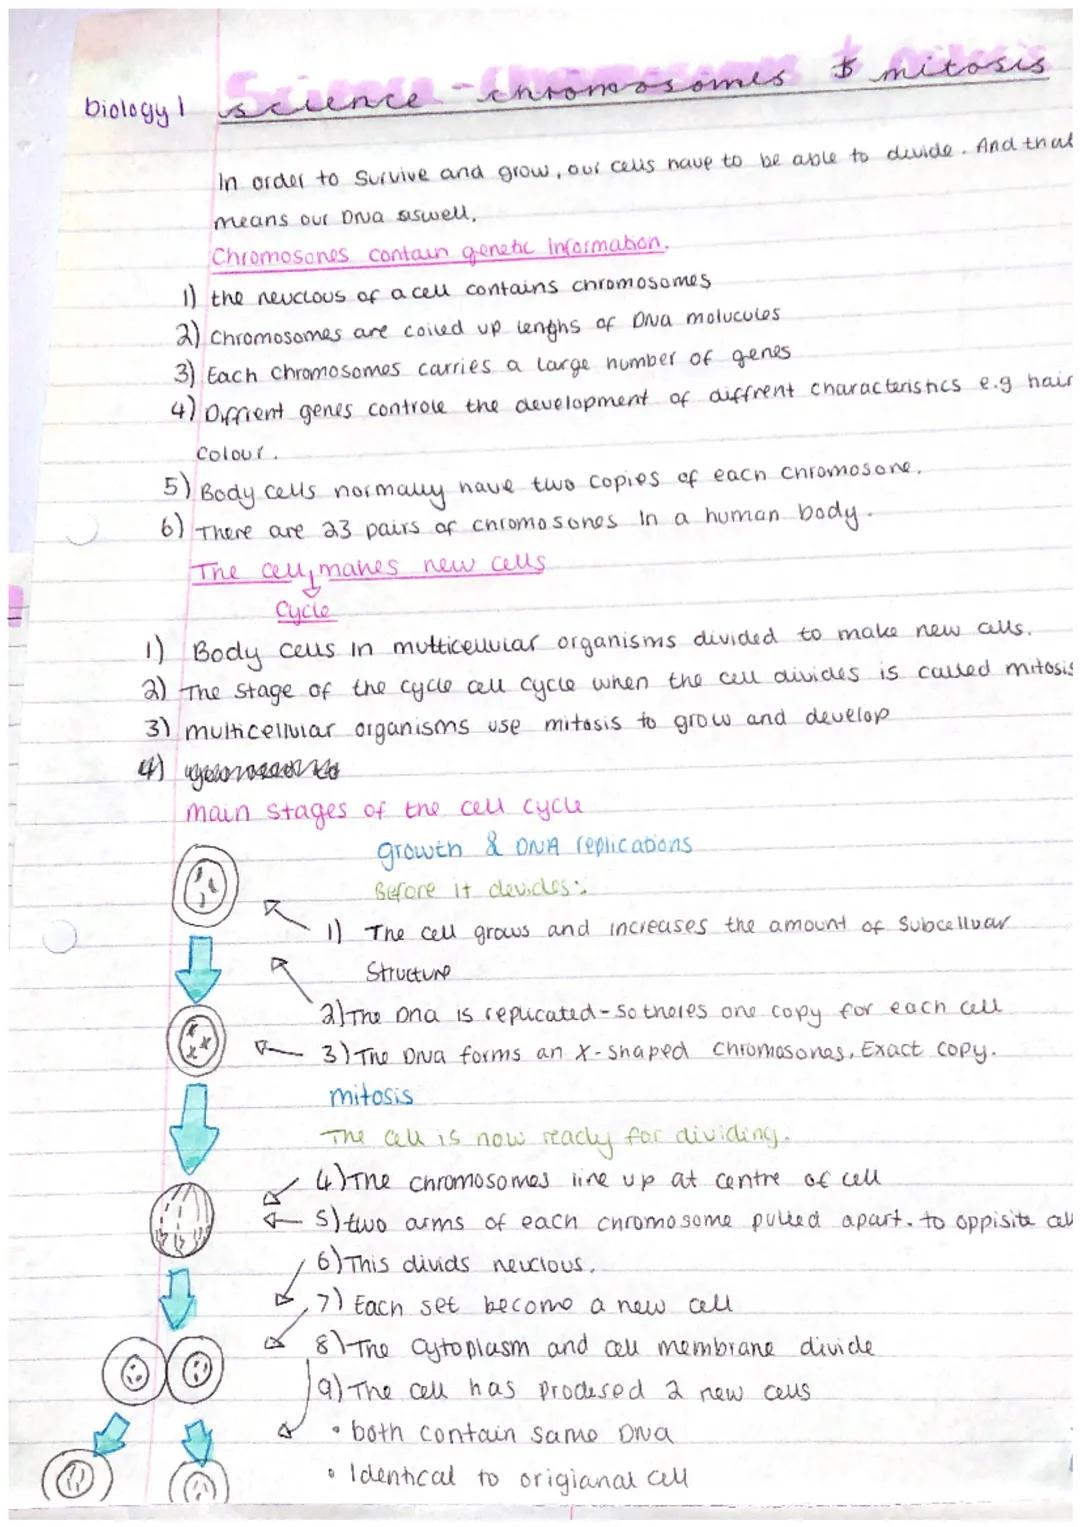 biology 1 science - chromosomes & mitosis
In order to survive and grow, our cells have to be able to divide. And that
means our DNA aswell.
Chromosones contain genetic information.
1) the neuclous of a cell contains chromosomes
2) Chromosomes are coiled up lenghs of DNA molucules
3) Each chromosomes carries a large number of genes
4) Diffrent genes controle the development of diffrent characteristics e.g hair
colour.
5) Body cells normally have two copies of each chromosone.
6) There are 23 pairs of chromosones In a human body.
The cell makes new cells
↓
Cycle
1) Body cells in multicellular organisms divided to make new cells.
2) The stage of the cycle cell cycle when the cell divides is called mitosis
3) multicelluar organisms use mitosis to grow and develop
4)
main stages of the cell cycle
growth & DNA replications
Before it devides:
1) The cell grows and increases the amount of subcelluar
Structure
2) The Dna is replicated - so theres one copy for each cell
3) The DNA forms an X-shaped chromosones. Exact copy.
mitosis
The cell is now ready for dividing.
4) The chromosomes line up at centre of cell
5) two arms of each chromosome pulled apart. to oppisite cell
6) This divids neuclous.
7) Each set become a new cell
8) The cytoplasm and cell membrane divide
9) The cell has prodesed 2 new cells
• both contain same DNA
• Identical to origianal cell